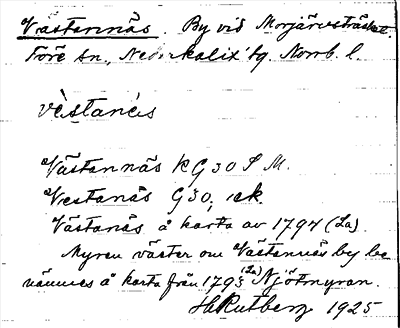 Västannäs By vid Morjärvsträsket.
Töre sn., Nederkalix tg. Norrb. l.
vèstanés
Västannäs KG 30 S M.
Vestanäs G 30, ek.
Västanås å karta av 1794 (La)
Myren väster om Västannäs by be
nämnes å karta från 1793 (La) Njötmyran.
H Rutberg 1925